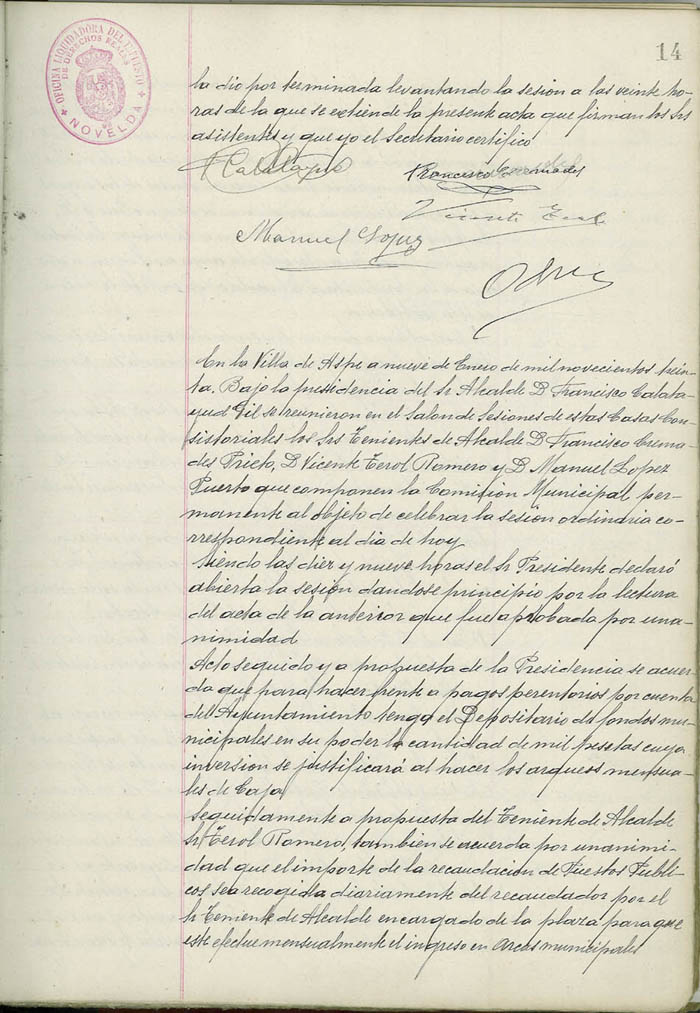 14
OFICINA LIQUIDADORA DEL IMPUESTO
DE DERECHOS REALES
NOVELDA
la dio por terminada levantando la sesión a las veinte ho-
ras de la que se extiende la presente acta que firman los Srs
asistentes y que yo el Secretario certifico
FCalatayud
Francisco Cremades
Vicente Erol
Manuel Lopez
En la Villa de Aspe a nueve de Enero de mil novecientos trein-
ta. Bajo la presidencia del Sr Alcalde D Francisco Calata-
yud Gil se reunieron en el Salon de Sesiones de estas Casas Con-
sistoriales los Srs Tenientes de Alcalde D Francisco Crema-
des Prieto, D Vicente Terol Romero y D Manuel Lopez
Puerto que componen la Comision Municipal per-
manente al objeto de celebrar la sesión ordinaria co-
rrespondiente al dia de hoy
Siendo las diez y nueve horas el Sr Presidente declaró
abierta la sesión dandose principio por la lectura
del acta de la anterior que fue aprobada por una-
nimidad
Acto seguido y a propuesta de la Presidencia se acuer-
da que para hacer frente a pagos perentorios por cuenta
del Ayuntamiento tenga el Depositario de fondos mu-
nicipales en su poder la cantidad de mil pesetas cuya
inversion se justificará al hacer los arqueos mensua-
les de Caja
Seguidamente a propuesta del Teniente de Alcalde
Sr Terol Romero, tambien se acuerda por unanimi-
dad que el importe de la recaudacion de Puestos Publi-
cos sea recogida diariamente del recaudador por el
Sr Teniente de Alcalde encargado de la plaza para que
este efectue mensualmente el ingreso en Arcas municipales